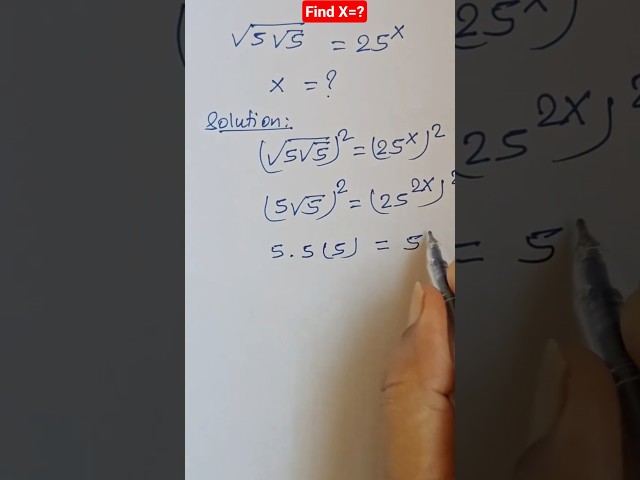 Find X=?
√5√5 = 25^x
x = ?
Solution:
(√5√5)^2 = (25^x)^2
(5√5)^2 = (25^2x)^2
5.5(5) = 5